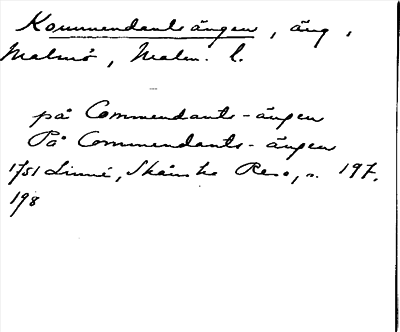 Kommendantsängen, äng,
Malmö, Malm. l.
på Commendants-ängen
På Commendants-ängen
1751 Linné, Skånska Resa, s. 197,
198